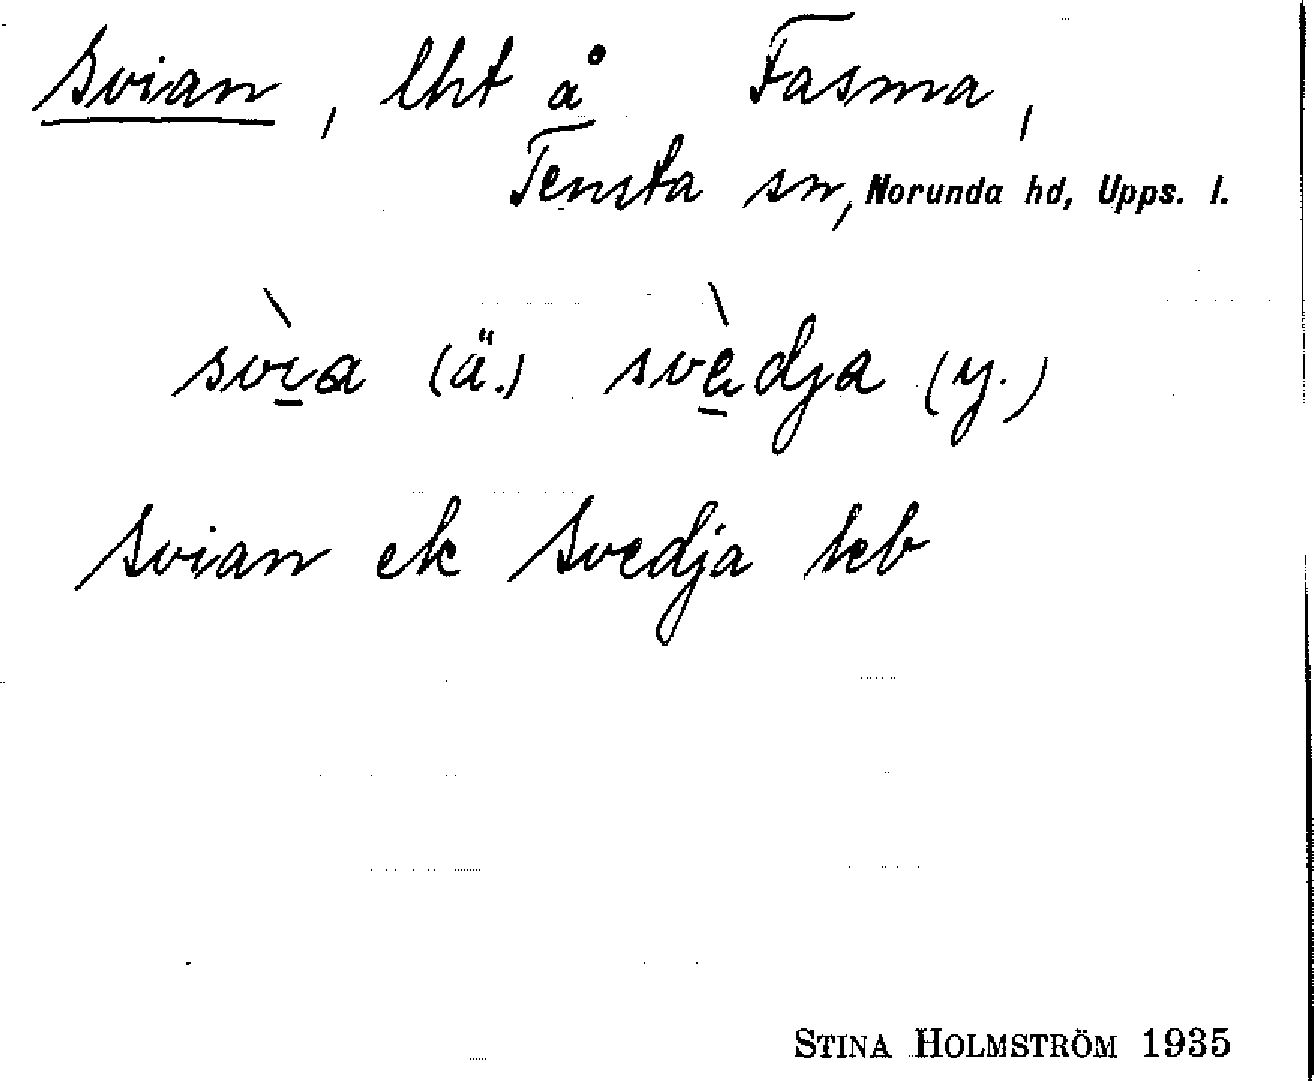 Svian, lht å Fasma,
Tensta sn, Norunda hd, Upps. l.
svìa (ä.) svèdja (y.)
Svian ek Svedja hcb
STINA HOLMSTRÖM 1935